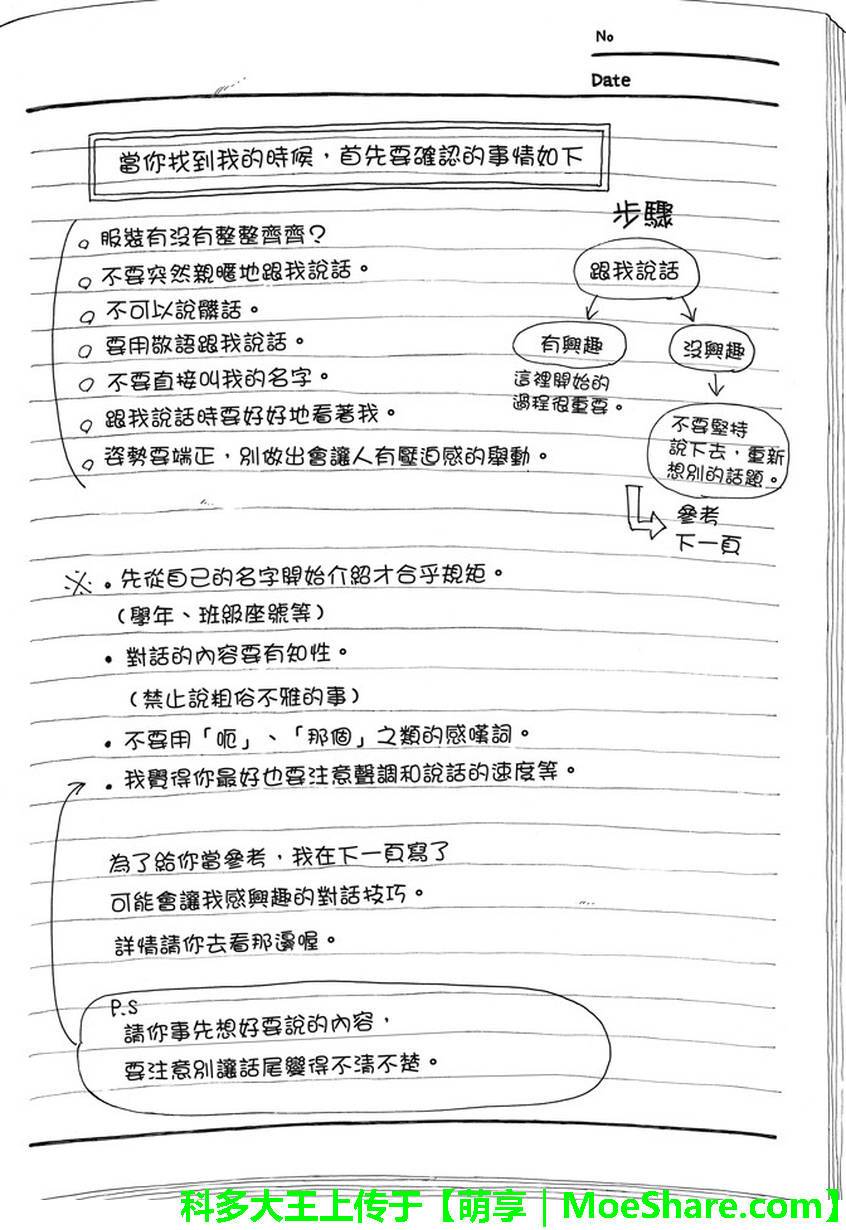 No
Date
當你找到我的時候，首先要確認的事情如下
服裝有沒有整整齊齊？
不要突然親暱地跟我說話。
不可以說髒話。
要用敬語跟我說話。
不要直接叫我的名字。
跟我說話時要好好地看著我。
姿勢要端正，別做出會讓人有壓迫感的舉動。
步驟
跟我說話
有興趣
這裡開始的
過程很重要。
沒興趣
不要堅持
說下去，重新
想別的話題。
參考
下一頁
※•先從自己的名字開始介紹才合乎規矩。
（學年、班級座號等）
•對話的內容要有知性。
（禁止說粗俗不雅的事）
•不要用「呃」、「那個」之類的感嘆詞。
•我覺得你最好也要注意聲調和說話的速度等。
為了給你當參考，我在下一頁寫了
可能會讓我感興趣的對話技巧。
詳情請你去看那邊喔。
P.S
請你事先想好要說的內容，
要注意別讓話尾變得不清不楚。
科多大王上传于【萌享｜MoeShare.com】